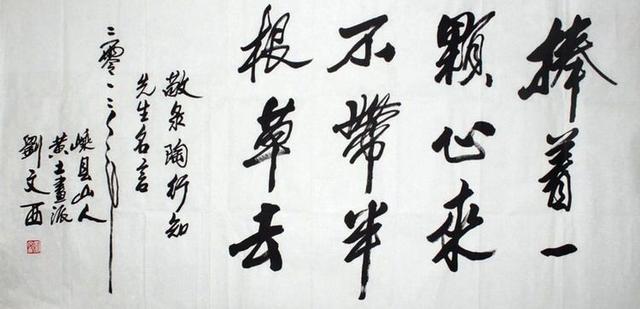 捧着一
顆心来
不帶半
根草去
敬录陶行知
先生名言
二零一二年
嵊县山人
黄土畫派
劉文西